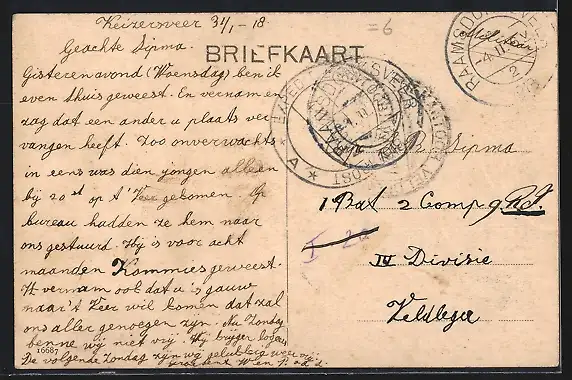 Keizersveer 31/1 - 18.
=6
Geachte Sipma.
BRIEFKAART
Militair
Gisterenavond (Woensdag) ben ik
even thuis geweest. En vernam en
zag dat een ander u plaats ver
vangen heeft. Zoo onverwachts
in eens was dien jongen alleen
bij 20 st op 't Veer gekomen. Op
bureau hadden ze hem naar
ons gestuurd. Hij is voor acht
maanden Kommies geweest.
Ik vernam ook dat u 's gauw
naar 't Veer wil komen dat zal
ons aller genoegen zijn. Nu Zondag
benne wij niet vrij. Hij
De volgende Zondag zijn wij gelukkig weer vrij
16687
Sipma
1 Bat 2 Comp 9 R.I.
IV Divisie
Veldleger
RAAMSDONKSVEER
4.II